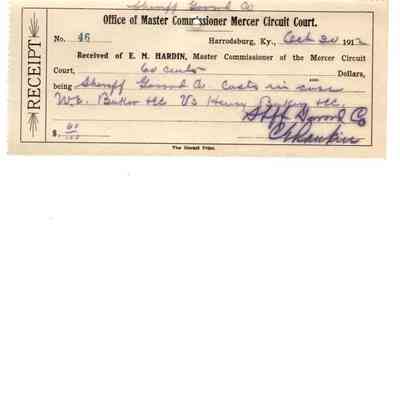 Sheriff Garrard Co
Office of Master Commissioner Mercer Circuit Court.
No. 46 Harrodsburg, Ky., Oct 30 1912
Received of E. M. HARDIN, Master Commissioner of the Mercer Circuit
Court, 60 cents Dollars,
being Sheriff Garrard Co. Costs in case
W.E. Baker &c Vs Henry Baker &c.
Shff Garrard Co
$ 60/100 C A Rankin
RECEIPT